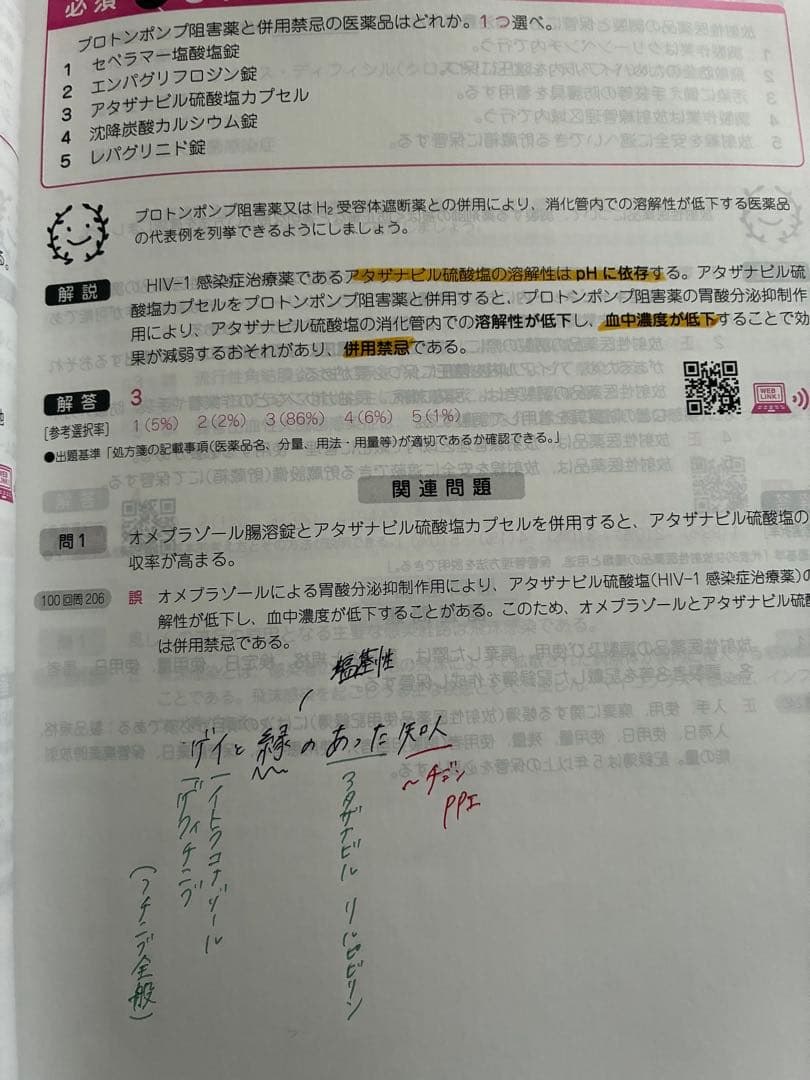 必須
プロトンポンプ阻害薬と併用禁忌の医薬品はどれか。1つ選べ。
1 セベラマー塩酸塩錠
2 エンパグリフロジン錠
3 アタザナビル硫酸塩カプセル
4 沈降炭酸カルシウム錠
5 レパグリニド錠
プロトンポンプ阻害薬又はH₂受容体遮断薬との併用により、消化管内での溶解性が低下する医薬品
の代表例を列挙できるようにしましょう。
解説 HIV-1感染症治療薬であるアタザナビル硫酸塩の溶解性はpHに依存する。アタザナビル硫
酸塩カプセルをプロトンポンプ阻害薬と併用すると、プロトンポンプ阻害薬の胃酸分泌抑制作
用により、アタザナビル硫酸塩の消化管内での溶解性が低下し、血中濃度が低下することで効
果が減弱するおそれがあり、併用禁忌である。
解答 3
[参考選択率] 1(5%) 2(2%) 3(86%) 4(6%) 5(1%)
WEB LINK!
●出題基準「処方箋の記載事項(医薬品名、分量、用法・用量等)が適切であるか確認できる。」
関連問題
問1 オメプラゾール腸溶錠とアタザナビル硫酸塩カプセルを併用すると、アタザナビル硫酸塩の
収率が高まる。
100回問206 誤 オメプラゾールによる胃酸分泌抑制作用により、アタザナビル硫酸塩(HIV-1感染症治療薬)の
解性が低下し、血中濃度が低下することがある。このため、オメプラゾールとアタザナビル硫酸
は併用禁忌である。
塩基性
ゲイと縁のあった知人
〜チゾン
PPI
イトラコナゾール
ゲフィチニブ
(フチニブ全般)
アタザナビル リルピビリン